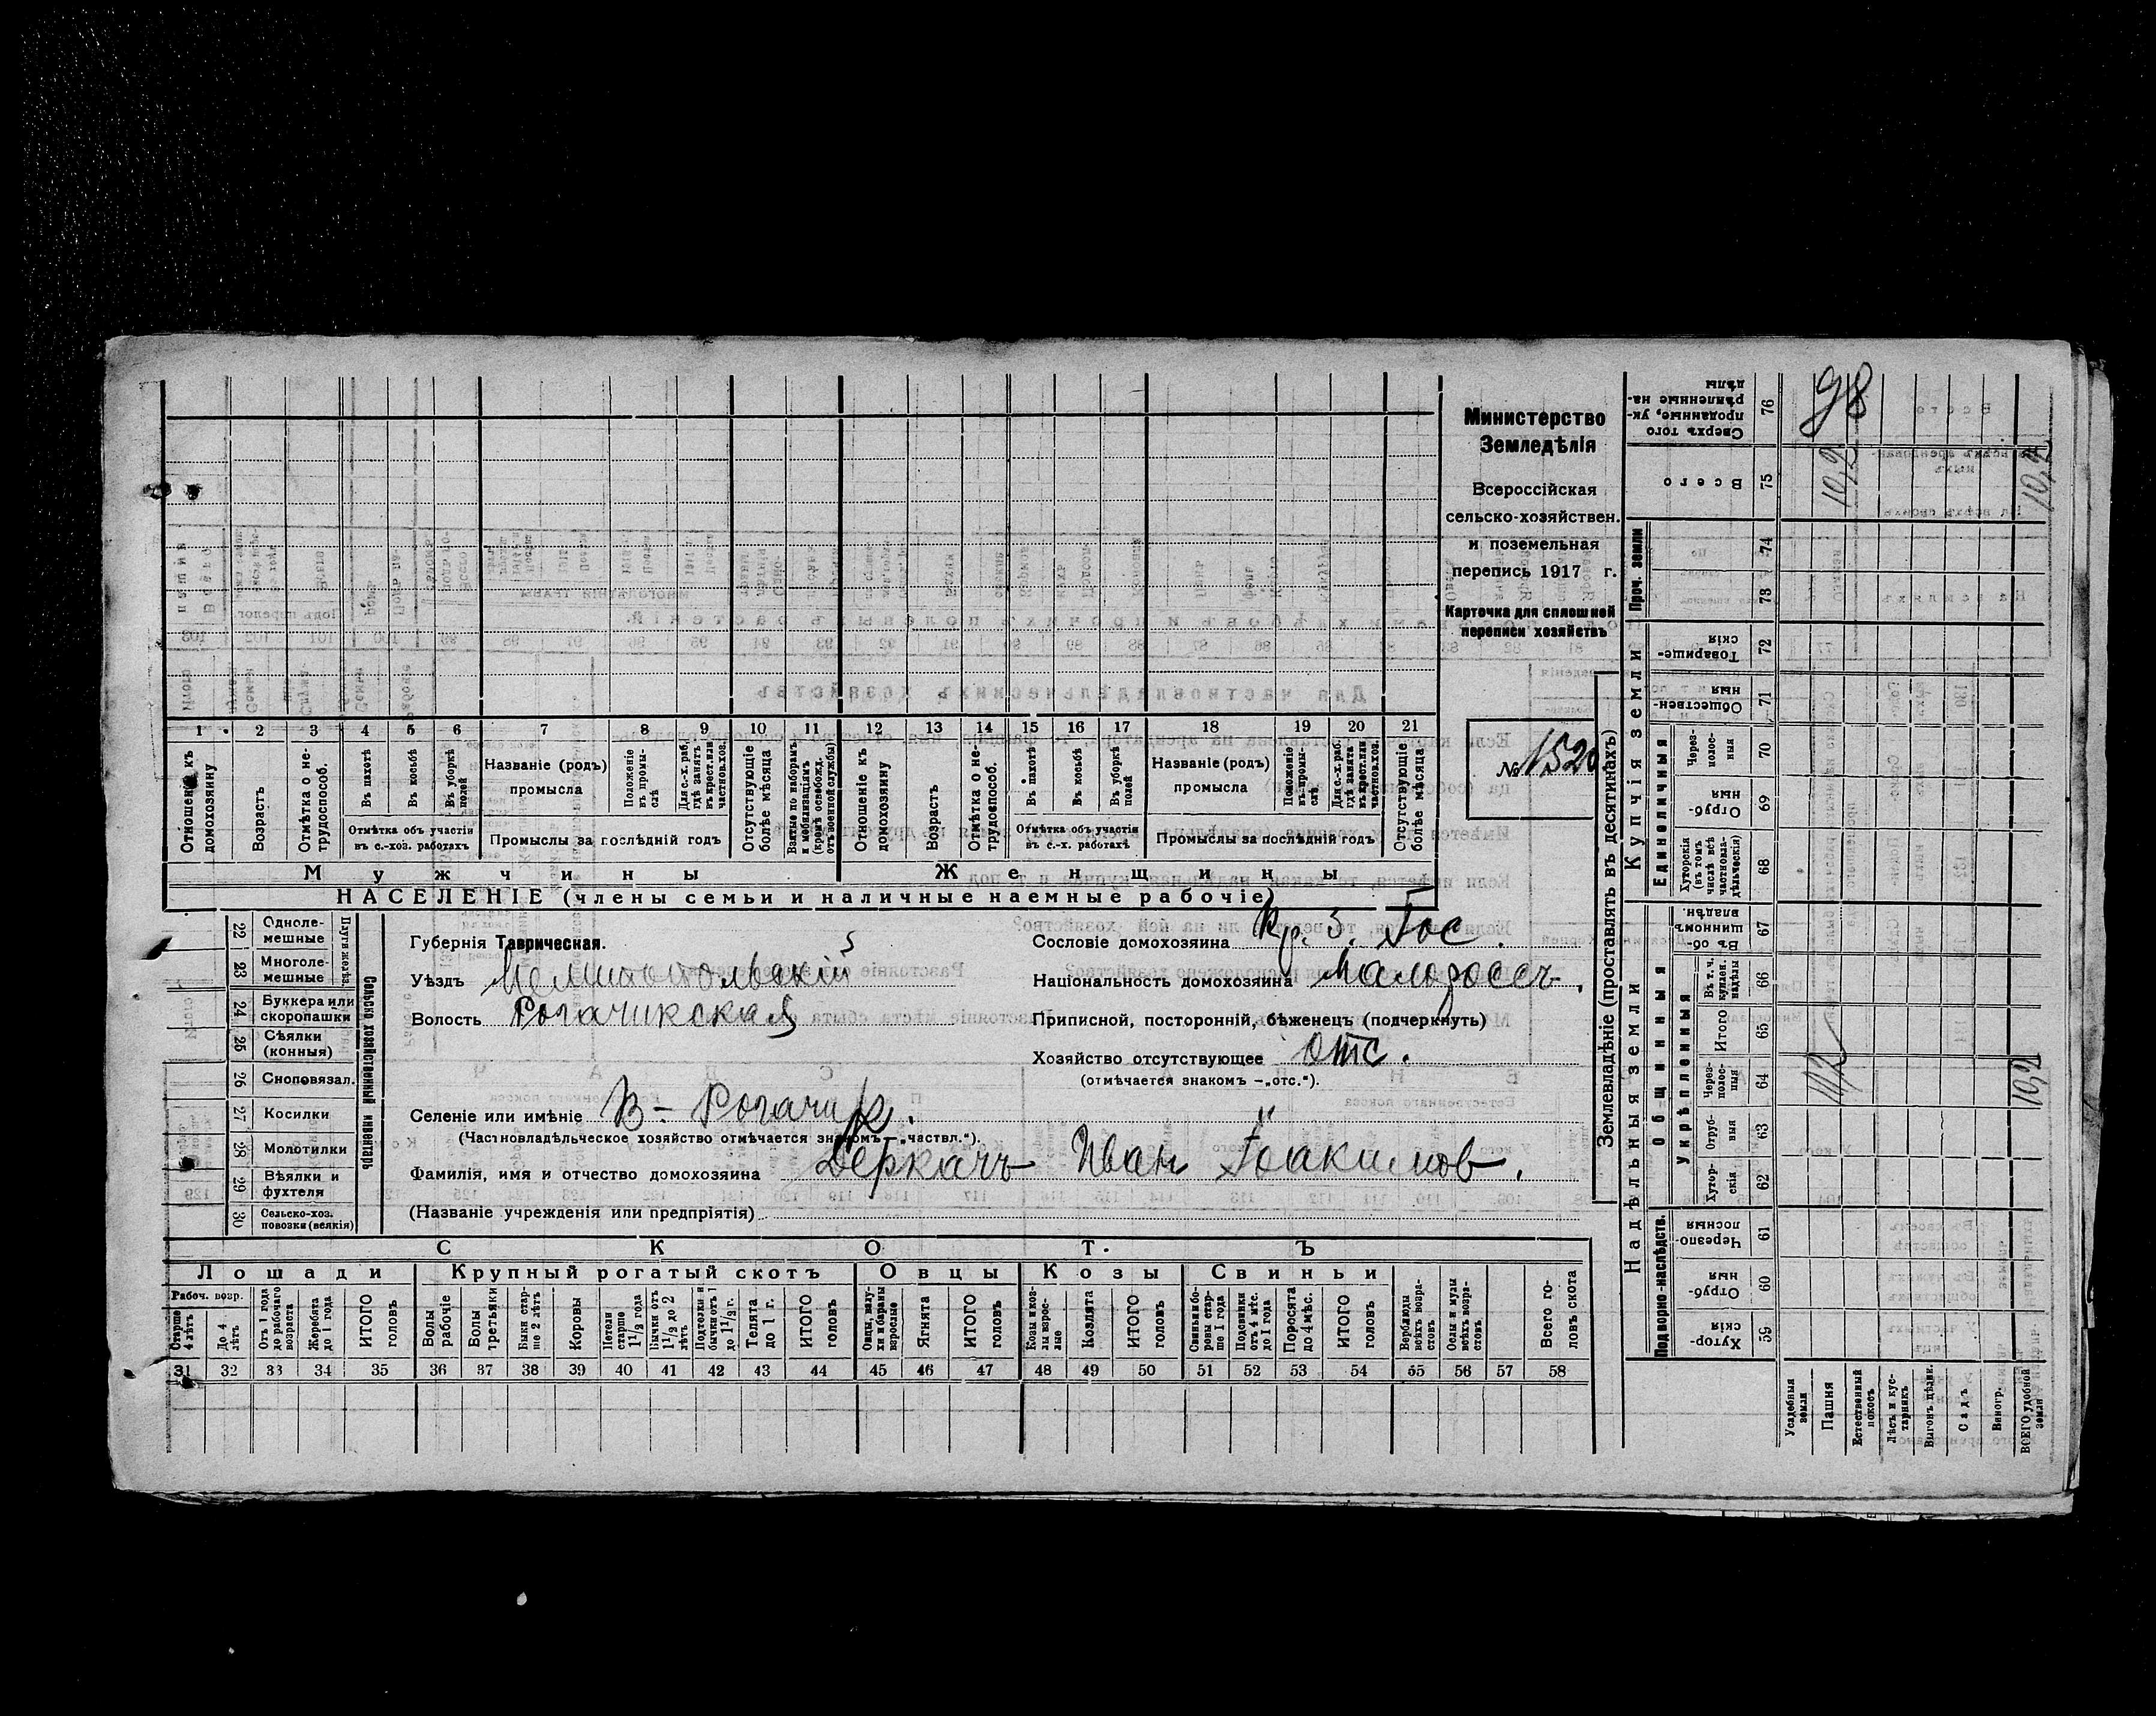 Министерство
Земледѣлія
Всероссійская
сельско-хозяйствен.
и поземельная
перепись 1917 г.
Карточка для сплошной
переписи хозяйствъ
№ 1520
1 2 3 4 5 6 7 8 9 10 11 12 13 14 15 16 17 18 19 20 21
Отношеніе къ домохозяину
Возрастъ
Отмѣтка о не-трудоспособ.
Въ пахотѣ
Въ косьбѣ
Въ уборкѣ полей
Отмѣтка объ участіи въ с.-хоз. работахъ
Названіе (родъ) промысла
Положеніе въ промы-слѣ
Для с.-х. раб. гдѣ занятъ въ крест. или частнов. хоз.
Промыслы за послѣдній годъ
Отсутствующіе болѣе мѣсяца
Взятые по наборамъ и мобилизаціямъ (кромѣ освобожд. отъ военной службы)
Отношеніе къ домохозяину
Возрастъ
Отмѣтка о не-трудоспособ.
Въ пахотѣ
Въ косьбѣ
Въ уборкѣ полей
Отмѣтка объ участіи въ с.-х. работахъ
Названіе (родъ) промысла
Положеніе въ промы-слѣ
Для с.-х. раб. гдѣ занята въ крест. или частнов. хоз.
Промыслы за послѣдній годъ
Отсутствующіе болѣе мѣсяца
Мужчины Женщины
НАСЕЛЕНІЕ (члены семьи и наличные наемные рабочіе)
22 Одноле-мешные
23 Многоле-мешные
Плуги желѣз.
24 Буккера или скоропашки
25 Сѣялки (конныя)
26 Сноповязал.
27 Косилки
28 Молотилки
29 Вѣялки и фухтеля
30 Сельско-хоз. повозки (всякія)
Сельско хозяйственный инвентарь
Губернія Таврическая.
Уѣздъ Мелитопольскій
Волость Рогачикская
Сословіе домохозяина Кр. З. Гос.
Національность домохозяина Малоросс.
Приписной, посторонній, бѣженецъ (подчеркнуть)
Хозяйство отсутствующее отс.
(отмѣчается знакомъ —„отс.“).
Селеніе или имѣніе В-Рогачик.
(Частновладѣльческое хозяйство отмѣчается знакомъ „частвл.“).
Фамилія, имя и отчество домохозяина Деркачъ Иван Іоакимов.
(Названіе учрежденія или предпріятія)
СКОТЪ
Лошади Крупный рогатый скотъ Овцы Козы Свиньи
Рабоч. возр.
Старше 4 лѣтъ
До 4 лѣтъ
Отъ 1 года до рабочаго возраста
Жеребята до 1 года
ИТОГО головъ
Волы рабочіе
Волы третьяки
Быки стар-ше 2 лѣтъ
Коровы
Нетели старше 1 1/2 года
Бычки отъ 1 1/2 до 2 лѣтъ
Подтелки и бычки отъ 1 до 1 1/2 г.
Телята до 1 г.
ИТОГО головъ
Овцы, валу-хи и бараны взрослые
Ягнята
ИТОГО головъ
Козы и коз-лы взрос-лые
Козлята
ИТОГО головъ
Свиньи и бо-ровы стар-ше 1 года
Подсвинки отъ 4 мѣс. до 1 года
Поросята до 4 мѣс.
ИТОГО головъ
Верблюды всѣхъ возра-стовъ
Ослы и мулы всѣхъ возра-стовъ
Всего го-ловъ скота
31 32 33 34 35 36 37 38 39 40 41 42 43 44 45 46 47 48 49 50 51 52 53 54 55 56 57 58
Землевладѣніе (проставлять въ десятинахъ)
98
Сверхъ того проданные, ук-рѣпленные на-дѣлы 76
Всего 75 10,2 10,2
Проч. земли 74 73
Купчія земли
Товарище-скія 72
Обществен-ныя 71
Единоличныя
Через-полос-ныя 70
Отруб-ныя 69
Хуторскія (въ томъ числѣ всѣ частновла-дѣльческія) 68
Надѣльныя земли
Общинныя
Въ об-щинномъ владѣн. 67
Укрѣпленныя
Въ т. ч. куплен. надѣлы 66
Итого 65
Через-полос-ныя 64 10,2 10,2
Отруб-ныя 63
Хутор-скія 62
Подворно-наслѣдств.
Черезпо-лосныя 61
Отруб-ныя 60
Хутор-скія 59
Усадебныя земли
Пашня
Естественный покосъ
Лѣсъ и кус-тарникъ
Выгонъ цѣлин.
Садъ
Виногр.
ВСЕГО удобной земли